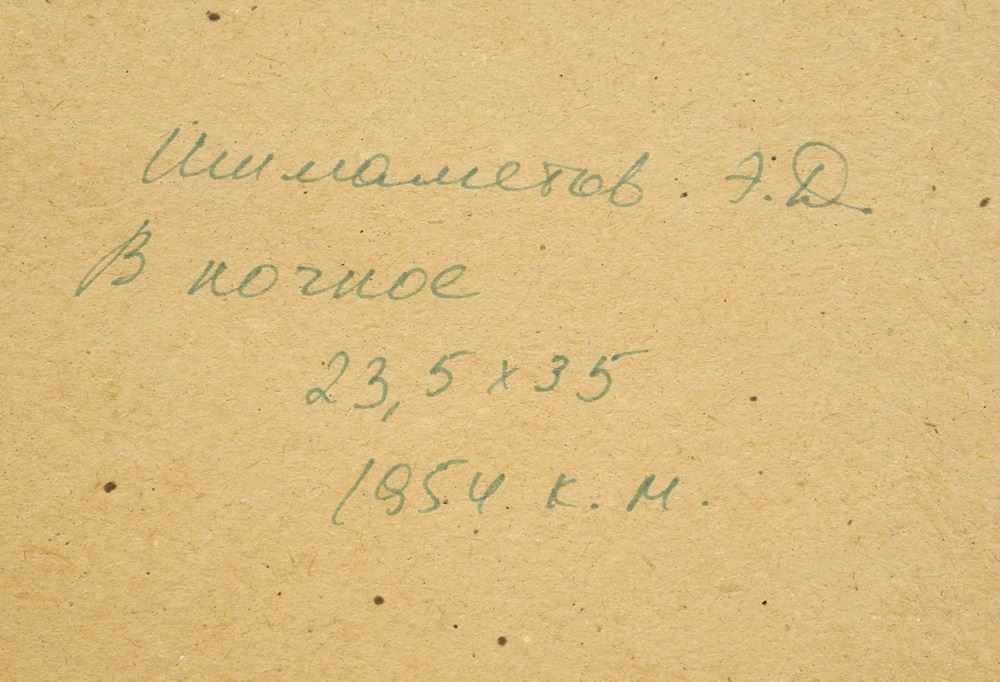 Ишмаметов Э.Д.
В ночное
23,5 х 35
1954 к. м.